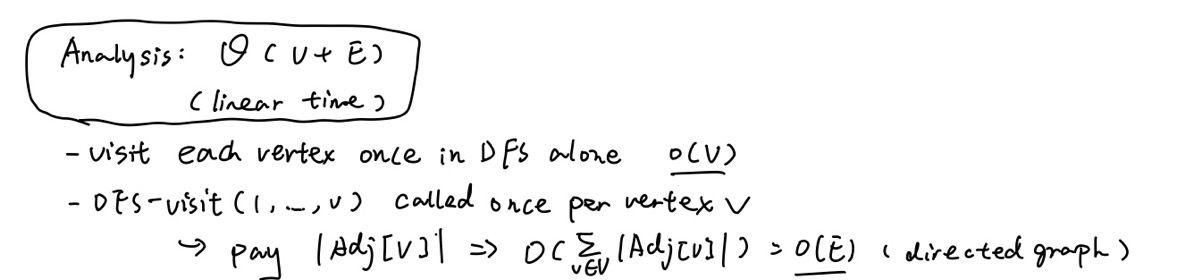 Analysis: Θ(V+E)
(linear time)
- visit each vertex once in DFS alone O(V)
- DFS-visit(1, ..., v) called once per vertex V
↳ pay |Adj[V]| => O(∑_{v∈V} |Adj[v]|) = O(E) (directed graph)